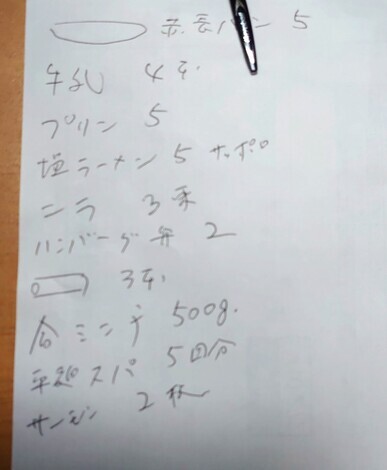 長パン 5
牛乳 4本
プリン 5
塩ラーメン 5 サッポロ
ニラ 3束
ハンバーグ弁 2
3本
合ミンチ 500g.
スパ 5回分
2杯